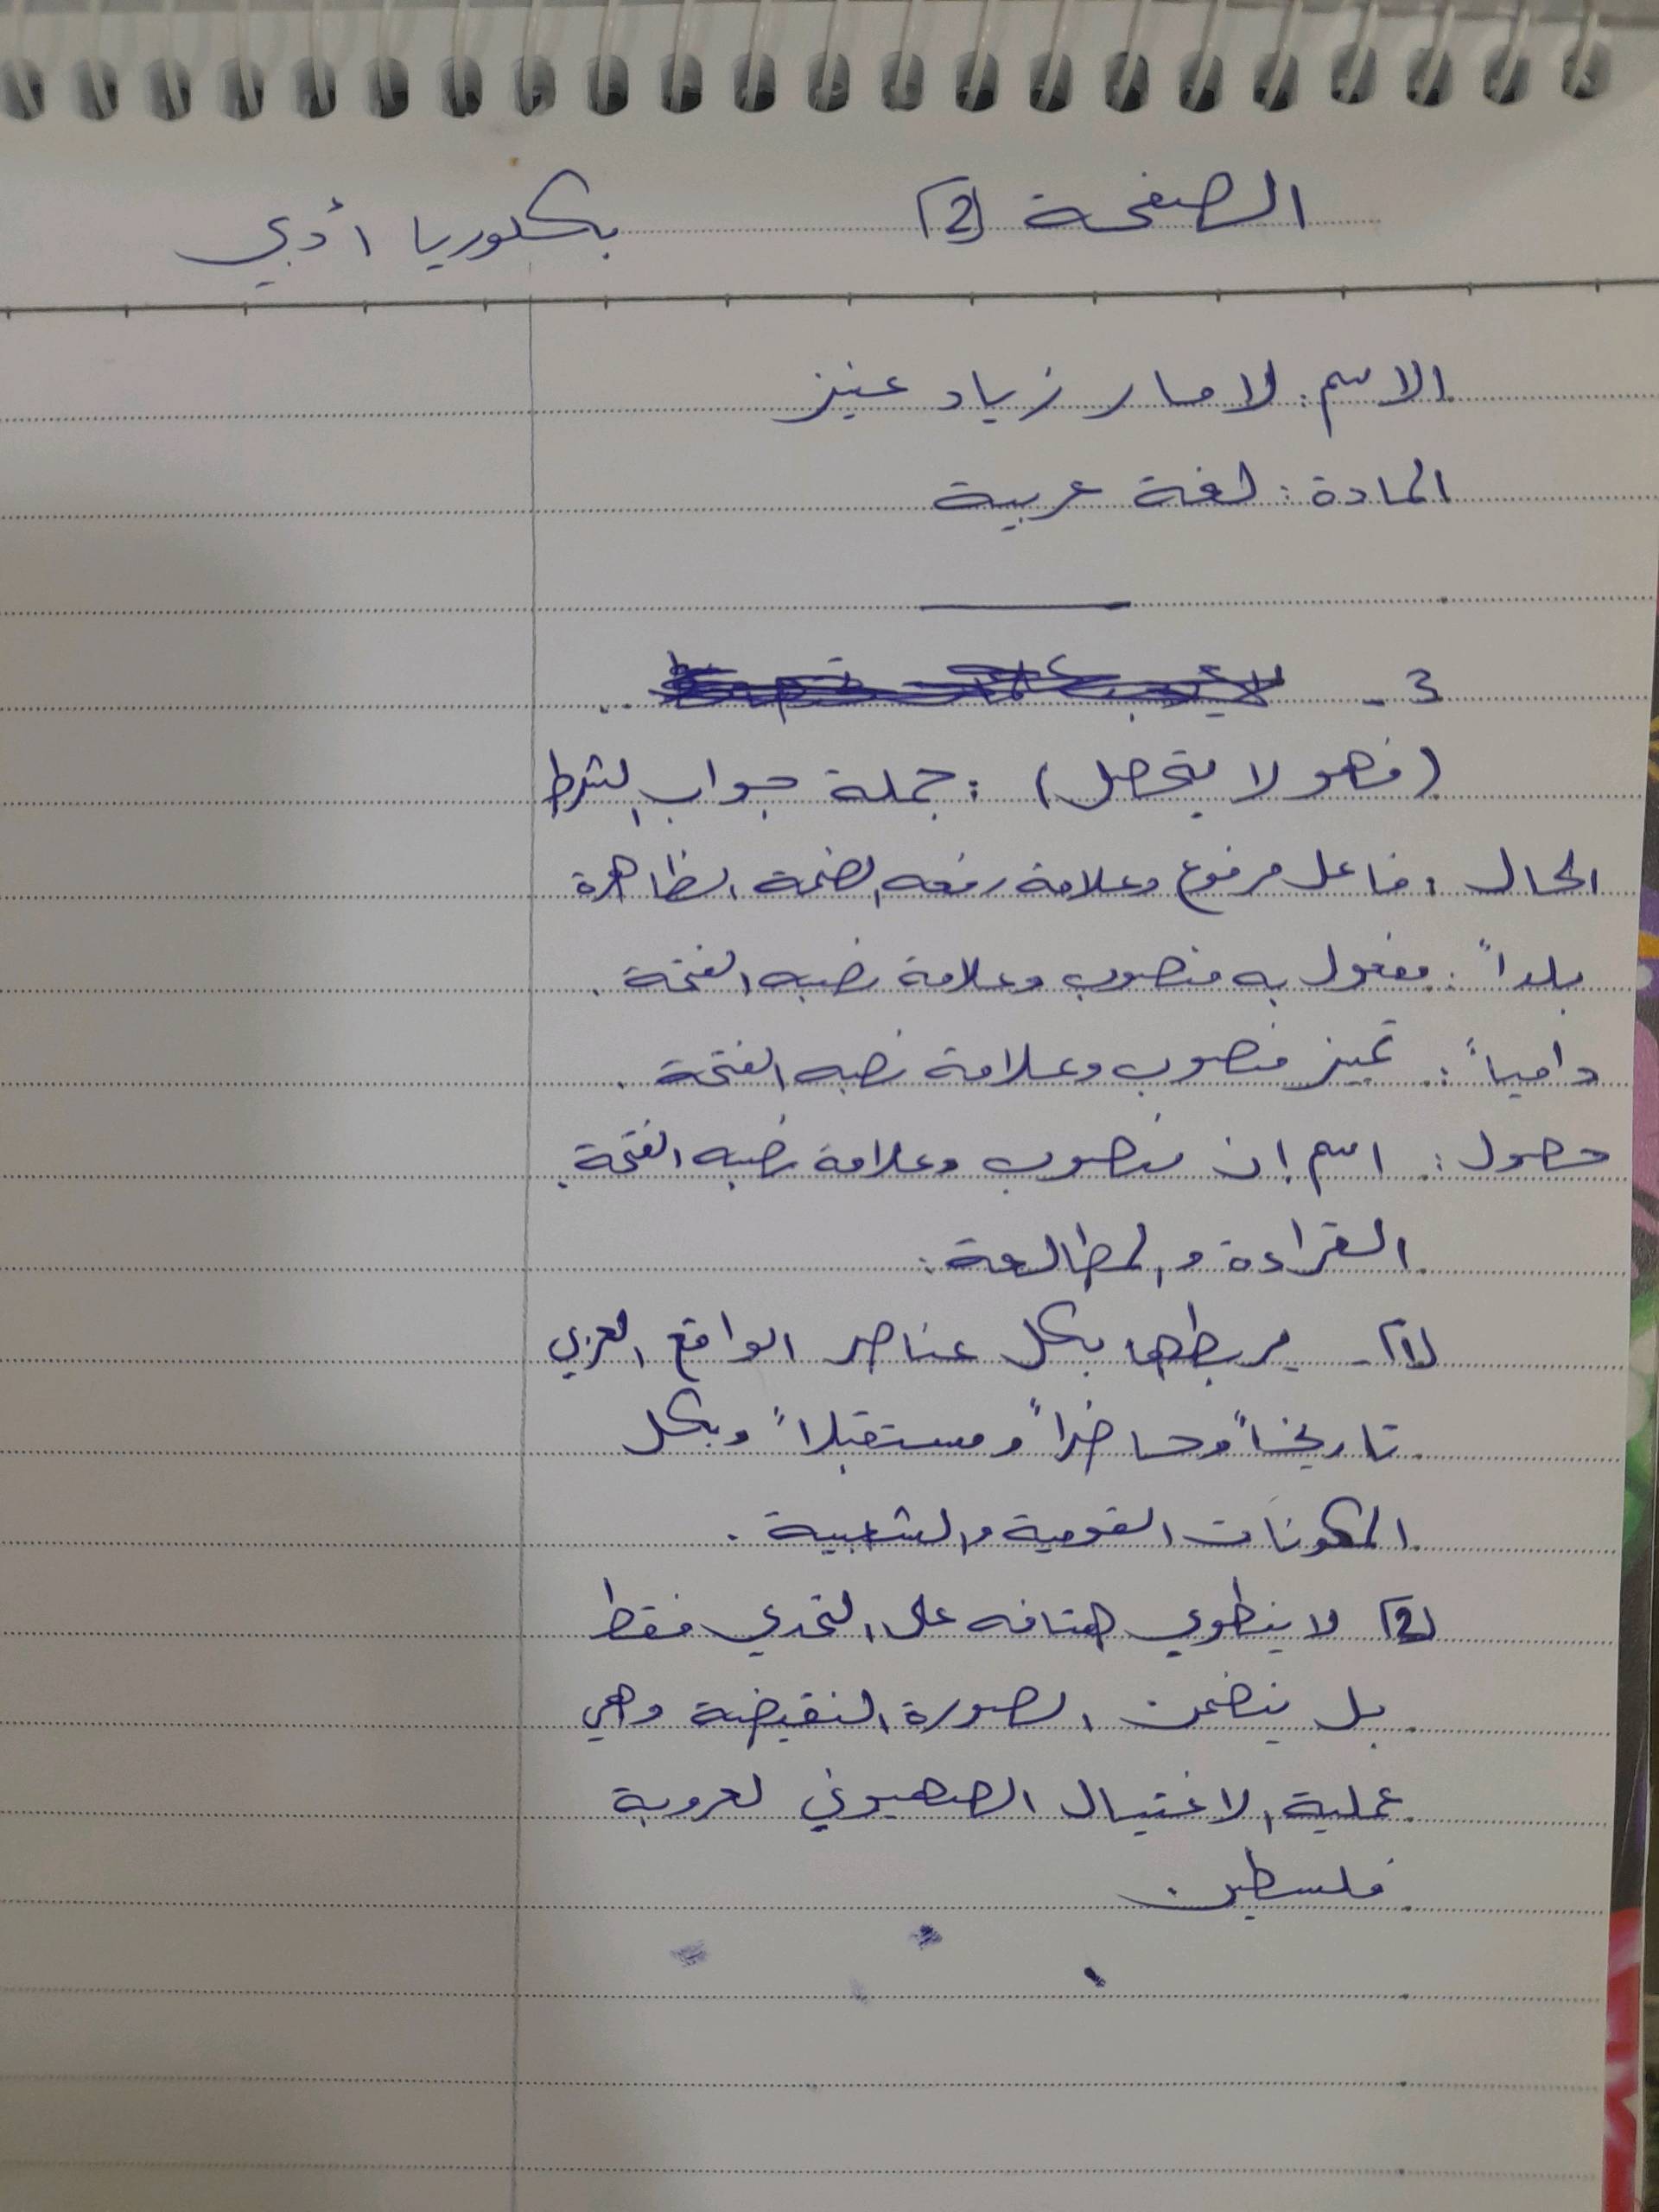 الصفحة (2) بكلوريا أدبي
الاسم: لامار زياد عنيز
المادة: لغة عربية
3 -
(فهو لا يتحصل): جملة جواب الشرط
الحال: فاعل مرفوع وعلامة رفعه الضمة الظاهرة
بلداً: مفعول به منصوب وعلامة نصبه الفتحة.
دامياً: تميز منصوب وعلامة نصبه الفتحة.
حصول: اسم إن منصوب وعلامة نصبه الفتحة.
القراءة والمطالعة:
(1)- يربطها بكل عناصر الواقع العربي
تاريخاً وحاضراً ومستقبلاً وبكل
المكونات القومية والشعبية.
(2) لا ينطوي هتافه على التحدي فقط
بل يتضمن الصورة النقيضة وهي
عملية الاغتيال الصهيوني لعروبة
فلسطين.